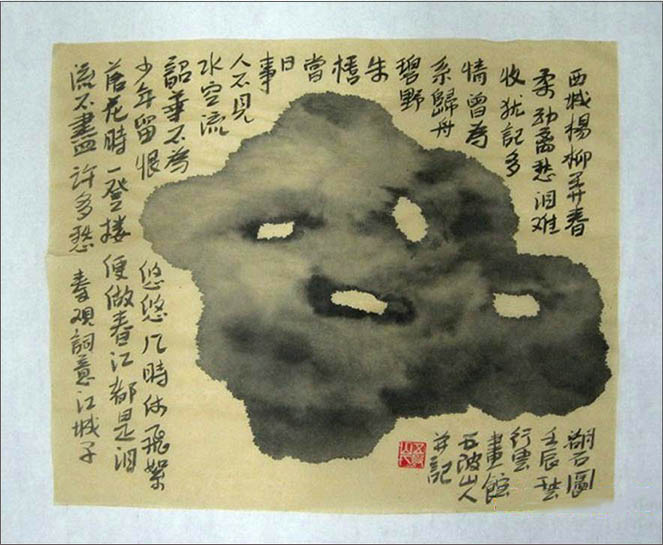 西城楊柳弄春
柔动离愁泪难
收犹記多
情曾為
系歸舟
碧野
朱
橋
當
日
事
人不見
水空流
韶華不為
少年留恨 悠悠几時休飛絮
落花時一登楼 便做春江都是泪
流不盡許多愁 春观詞意江城子
湖石圖
壬辰於
行雲
畫館
五陂山人
并記